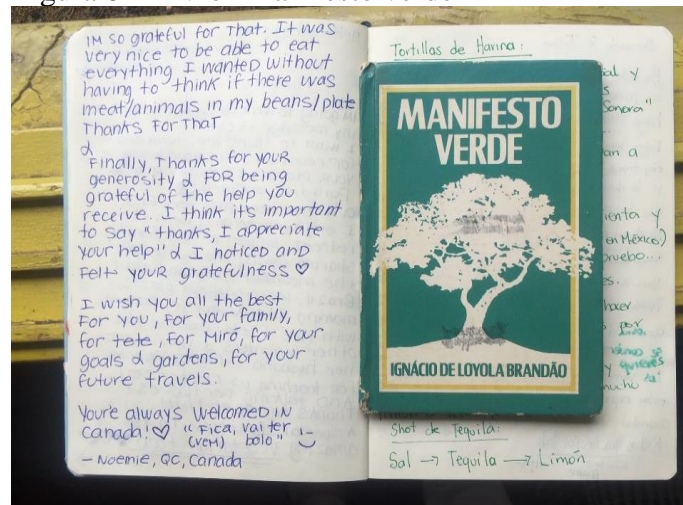 IM so grateful for That. It was
very nice to be able to eat
everything I wanted without
having to think if there was
meat/animals in my beans/plate
Thanks For That
&
Finally, Thanks for your
generosity & For being
grateful of the help you
receive. I think it's important
to say "thanks, I appreciate
your help" & I noticed and
Felt your gratefulness ♡
I wish you all the best
For you, for your family,
for tete, for Miró, for your
goals & gardens, for your
future travels.
You're always welcomed in
Canada! ♡ "Fica, vai ter
(vem) bolo" :)
- Noemie, QC, Canada
Tortillas de Harina:
y
Sonora"
an a
MANIFESTO
VERDE
y
en México)
IGNÁCIO DE LOYOLA BRANDÃO
por
quieres
Shot de Tequila:
Sal → Tequila → Limón